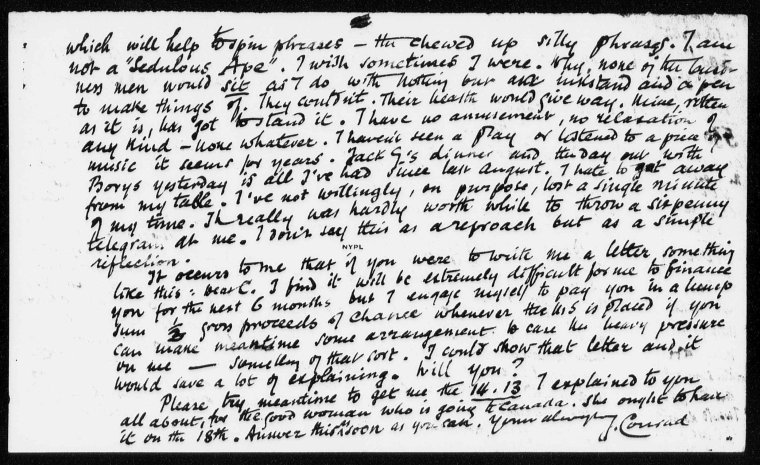 which will help to spin phrases — the chewed up silly phrases. I am
not a "Sedulous Ape". I wish sometimes I were. Why, none of the busi-
ness men would sit as I do with nothing but an inkstand and a pen
to make things of. They couldn't. Their health would give way. Mine, rotten
as it is, has got to stand it. I have no amusement, no relaxation of
any kind — none whatever. I haven't seen a play or listened to a piece of
music it seems for years. Jack G's dinner and the day out with
Borys yesterday is all I've had since last August. I hate to get away
from my table. I've not willingly, on purpose, lost a single minute
of my time. It really was hardly worth while to throw a sixpenny
telegram at me. I don't say this as a reproach but as a simple
reflection.
NYPL
It occurs to me that if you were to write me a letter something
like this: Dear C. I find it will be extremely difficult for me to finance
you for the next 6 months but I engage myself to pay you in a lump
sum ½ gross proceeds of Chance whenever the MS is placed if you
can make meantime some arrangement to ease the heavy pressure
on me — something of that sort. I could show that letter and it
would save a lot of explaining. Will you?
Please try meantime to get me the 14.13 I explained to you
all about, for the good woman who is going to Canada. She ought to have
it on the 18th. Answer this as soon as you can. Yours always J. Conrad